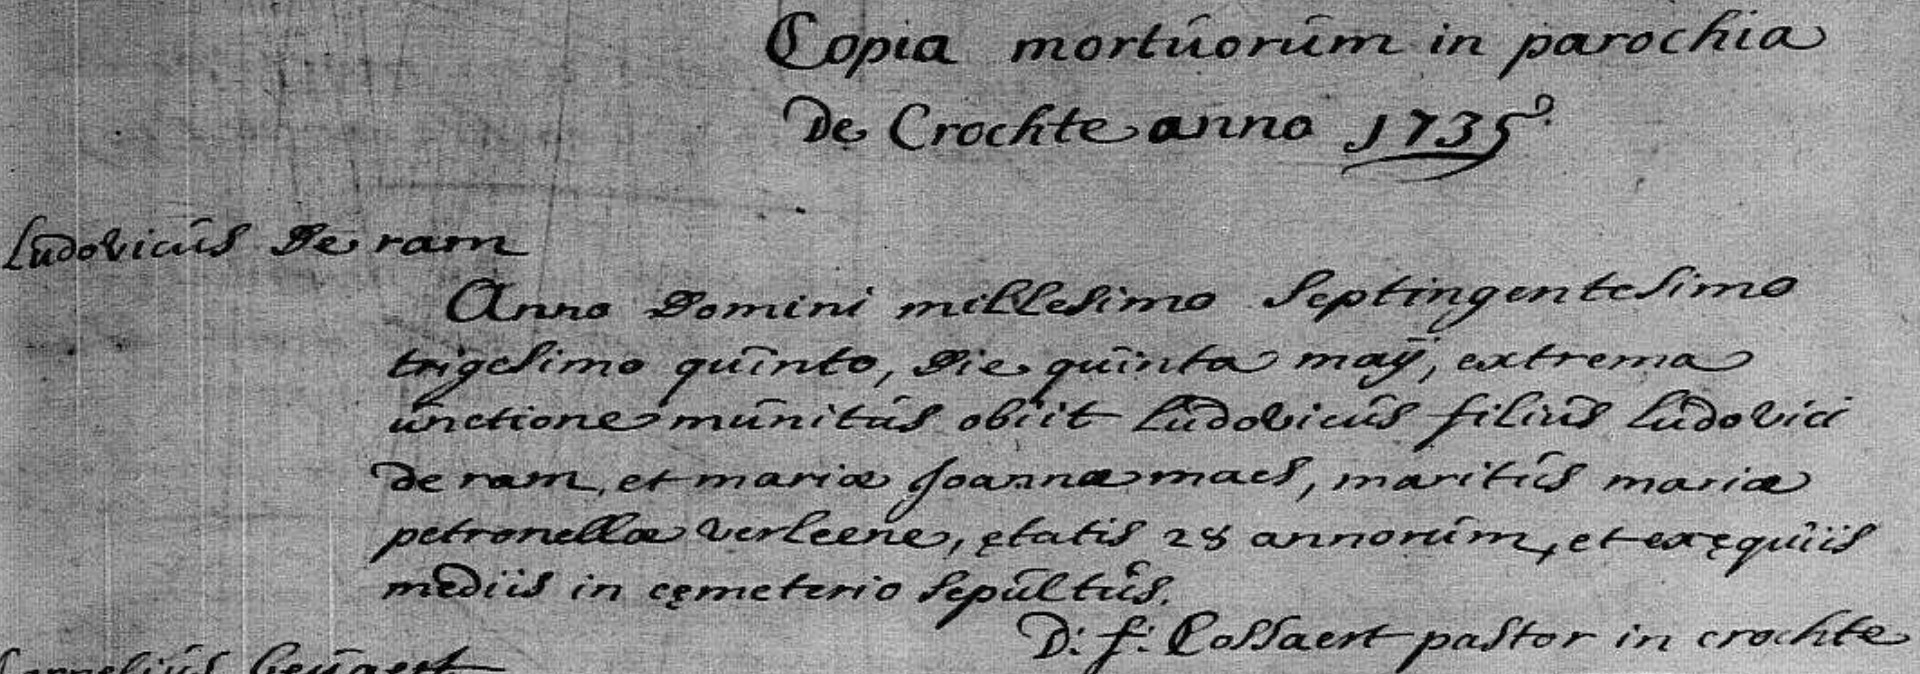 Copia mortuorum in parochia
De Crochte anno 1735°.
Ludovicus De ram
Anno Domini millesimo Septingentesimo
trigesimo quinto, Die quinta maÿ, extrema
unctione munitus obiit Ludovicus filius Ludovici
De ram, et mariæ Joannæ maes, maritus mariæ
petronellæ verleene, ętatis 28 annorum, et exęquiis
mediis in cęmeterio sepultus.
D: f: Cossaert pastor in crochte
Cornelius